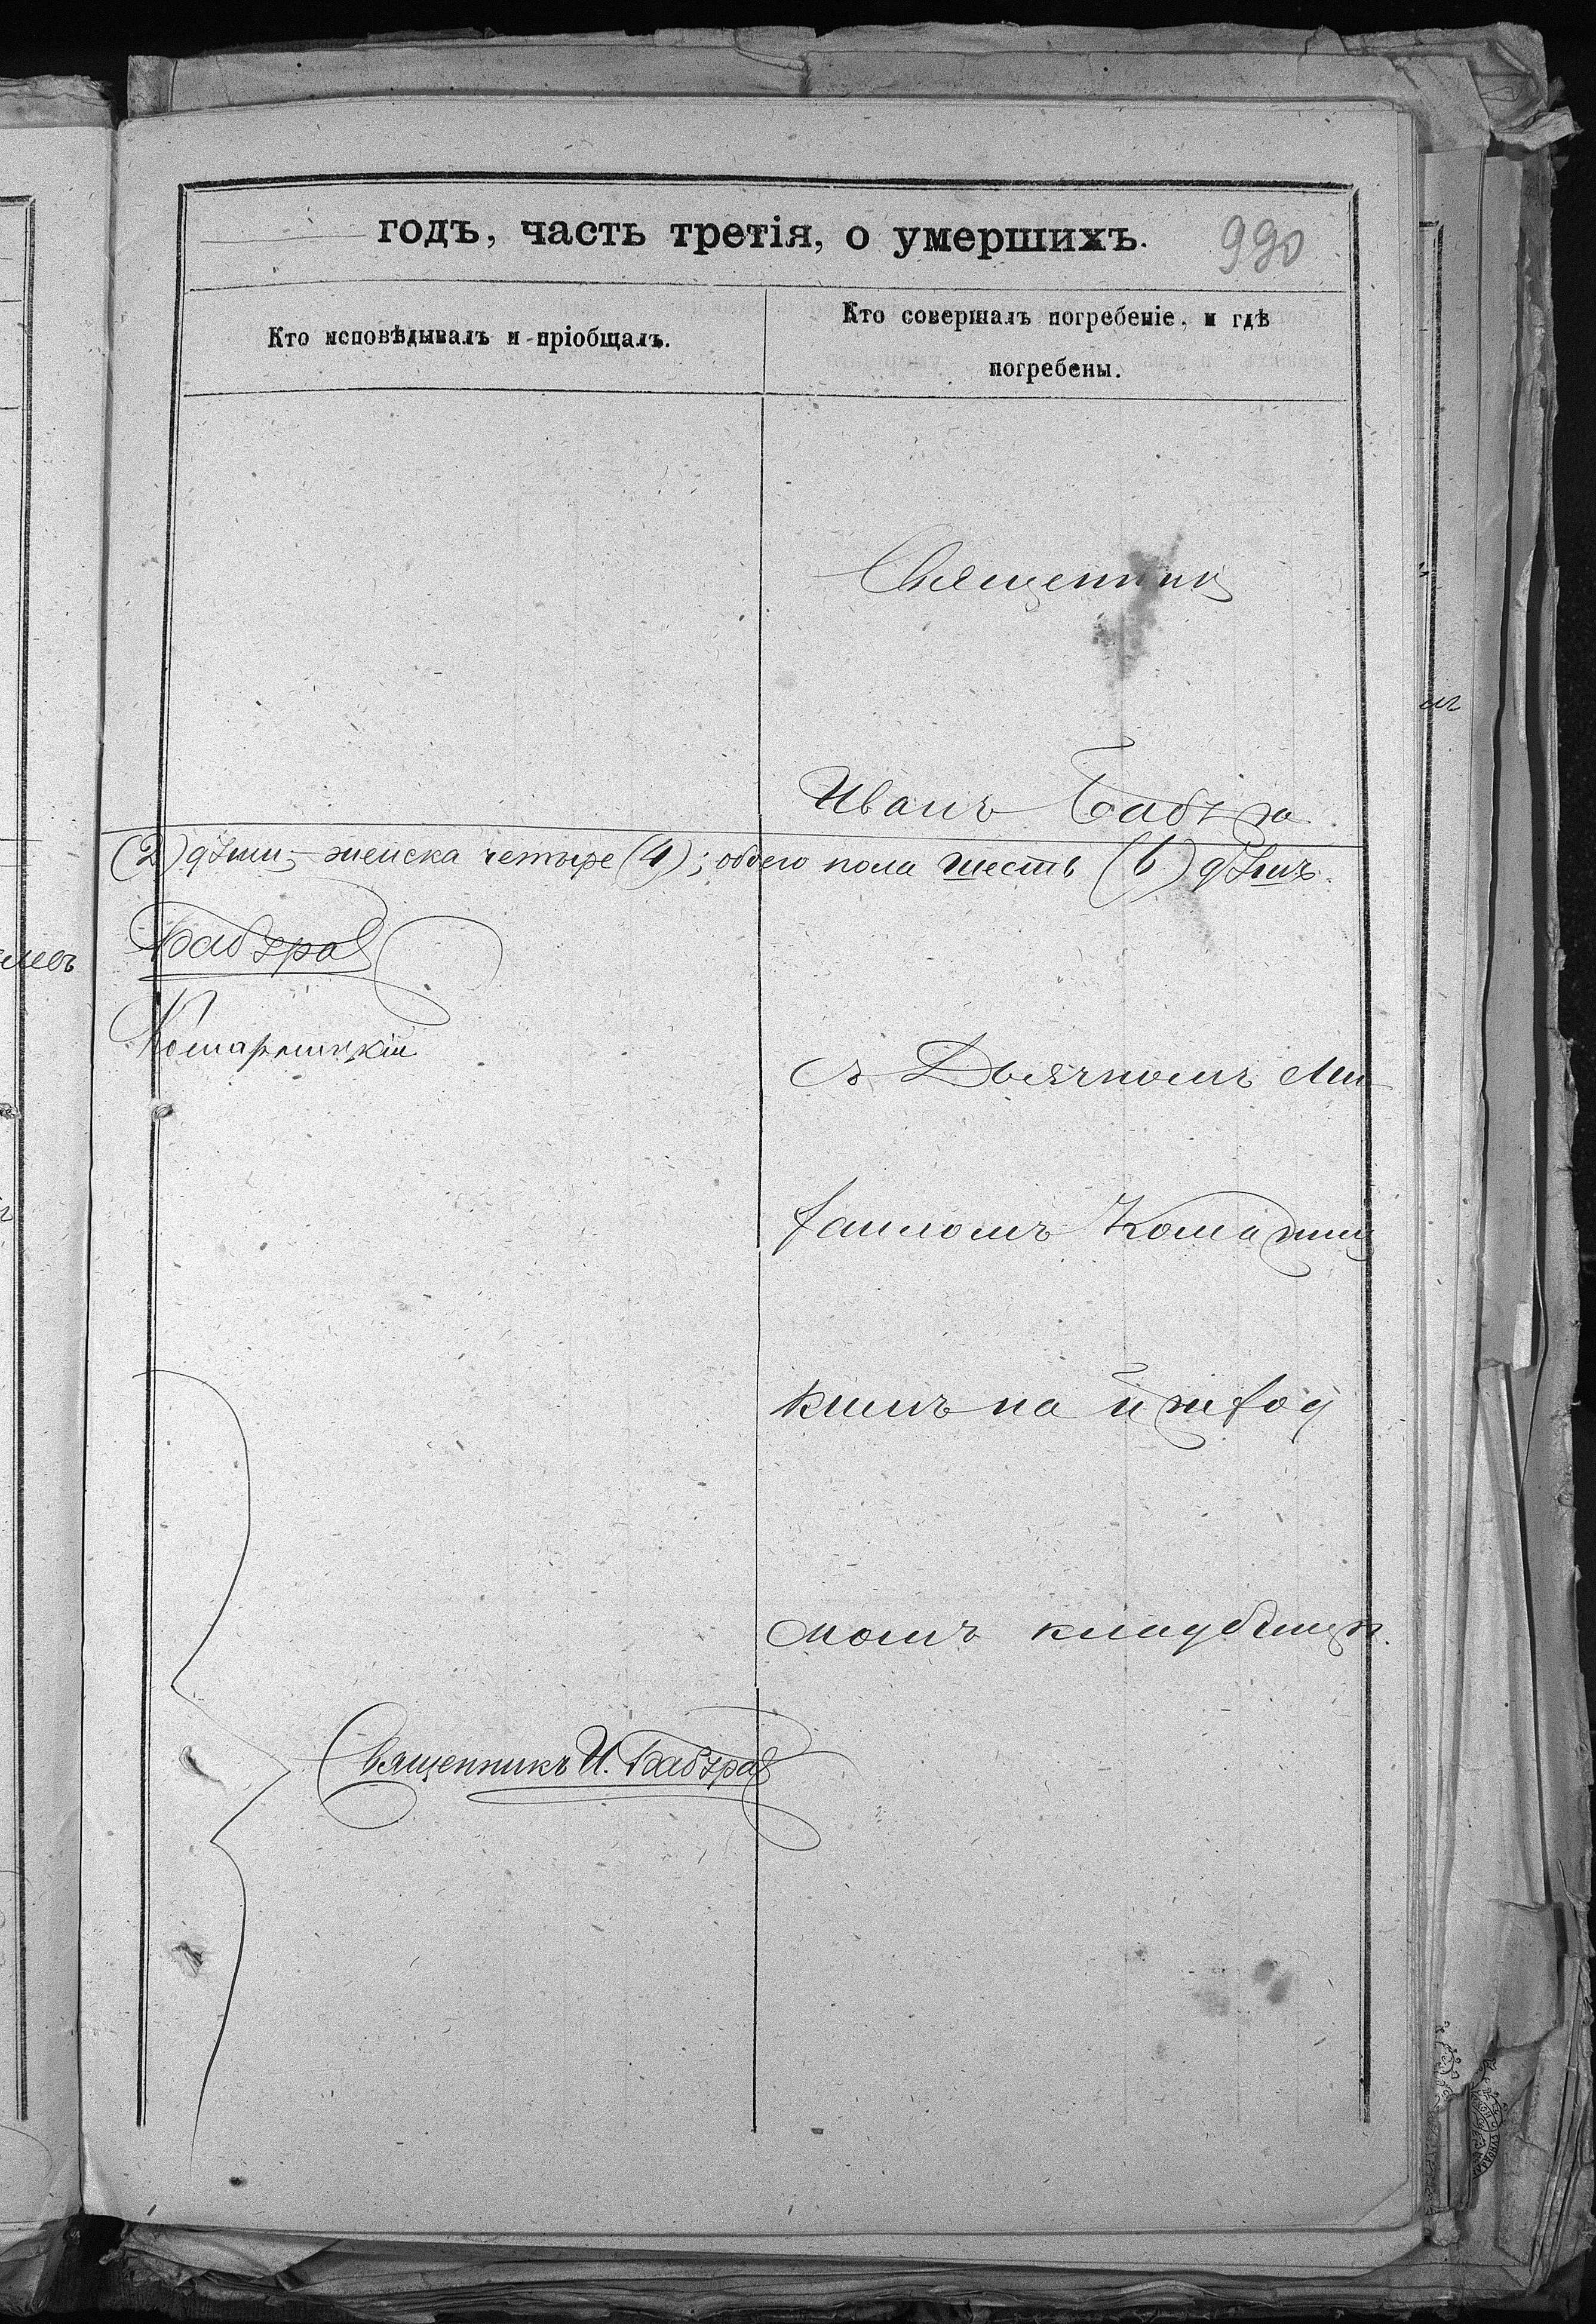 годъ, часть третія, о умершихъ.
990
Кто исповѣдывалъ и пріобщалъ.
Кто совершалъ погребеніе, и гдѣ
погребены.
Священникъ
Иванъ Бабура
(2) души, женска четыре (4); обоего пола шесть (6) душъ.
Бабура
Комарницкій
съ Дьячкомъ Ми
хаиломъ Комарниц
кимъ на приход
скомъ кладбищѣ.
Священникъ И. Бабура